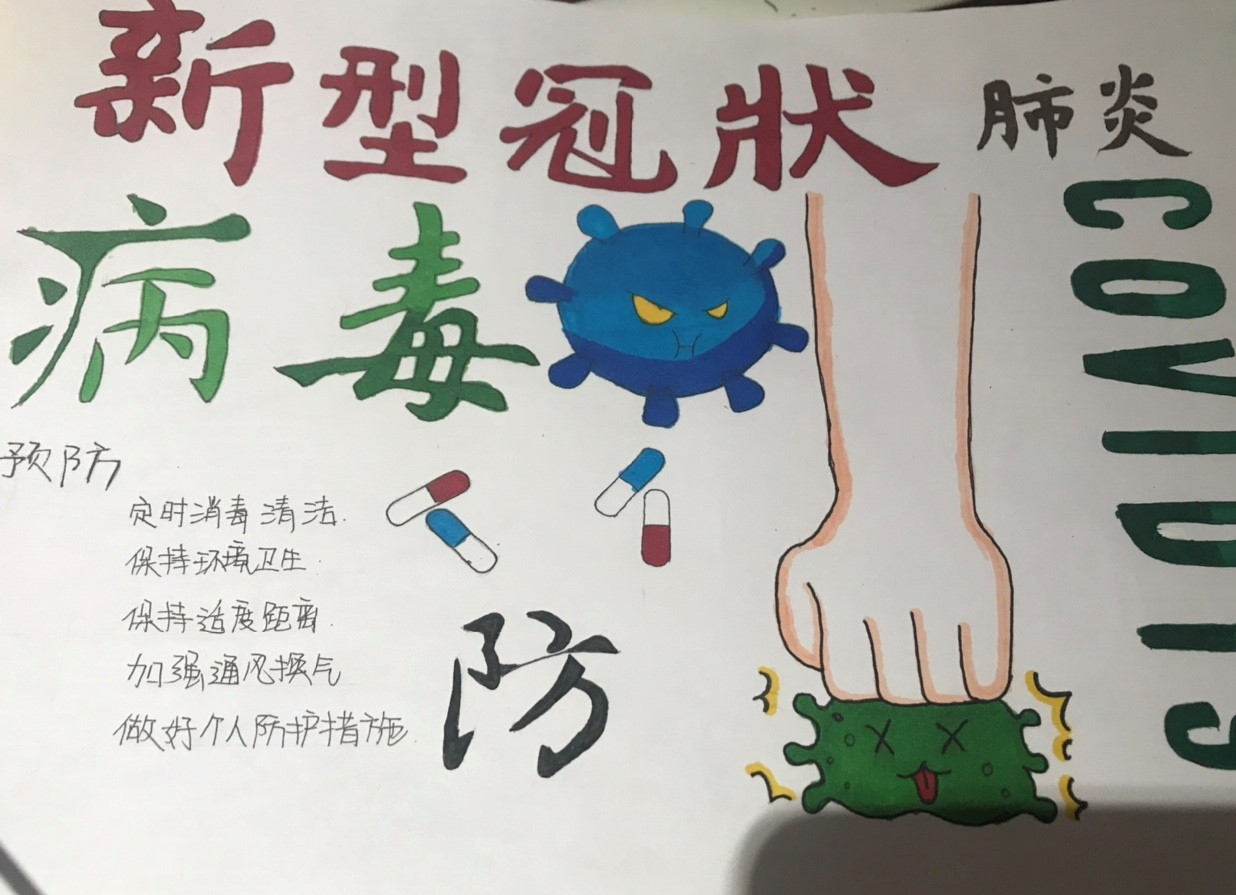 新型冠狀
肺炎
病毒
COVID19
预防
定时消毒清洁.
保持环境卫生.
保持适度距离.
加强通风换气
做好个人防护措施.
防